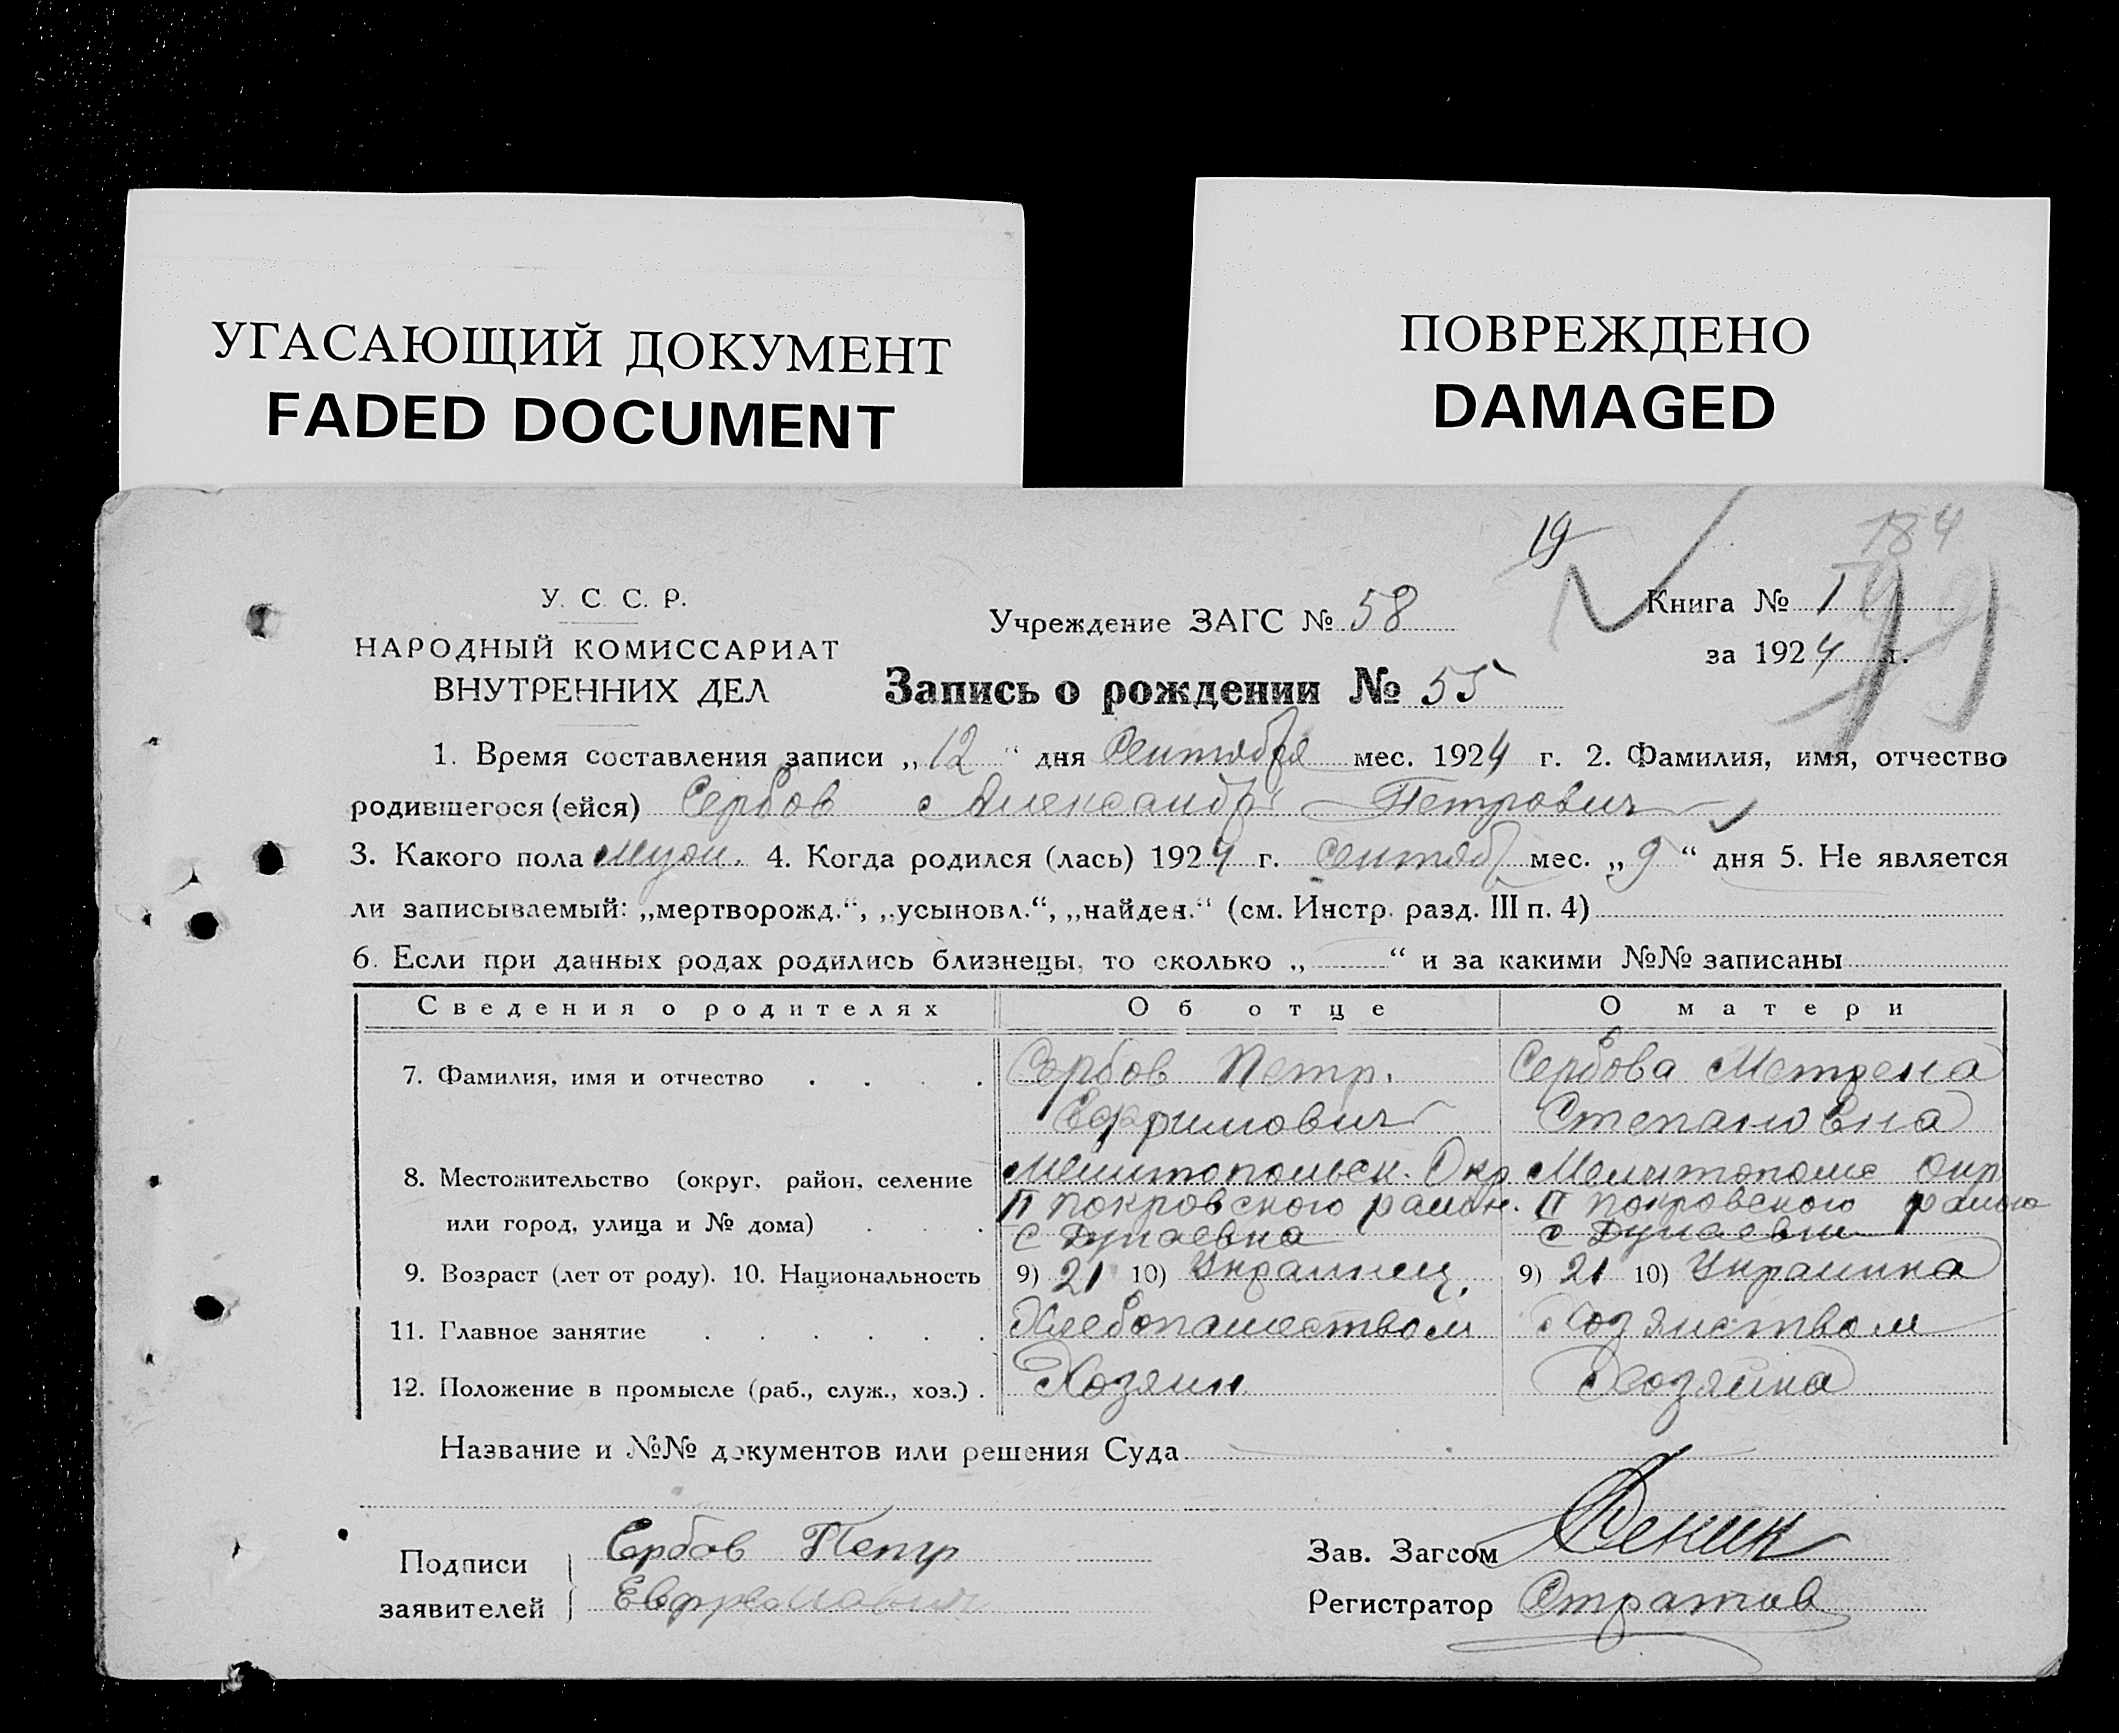 УГАСАЮЩИЙ ДОКУМЕНТ
FADED DOCUMENT
ПОВРЕЖДЕНО
DAMAGED
19
184
У. С. С. Р.
НАРОДНЫЙ КОМИССАРИАТ
ВНУТРЕННИХ ДЕЛ
Учреждение ЗАГС № 58
Книга № 1
за 1924 г.
Запись о рождении № 55
1. Время составления записи „12“ дня Сентября мес. 1924 г. 2. Фамилия, имя, отчество
родившегося (ейся) Сербов Александр Петрович
3. Какого пола муж. 4. Когда родился (лась) 1924 г. Сентяб мес. „9“ дня 5. Не является
ли записываемый: „мертворожд.“, „усыновл.“, „найден.“ (см. Инстр. разд. III п. 4)
6. Если при данных родах родились близнецы, то сколько „ “ и за какими №№ записаны
Сведения о родителях Об отце О матери
7. Фамилия, имя и отчество . . . . Сербов Петр. Сербова Матрена
Ефримович Степановна
8. Местожительство (округ, район, селение Мелитопольск. Окр Мелитопольс Окр
II Покровского район. II Покровского района
или город, улица и № дома) . . . с Дунаевка с Дунаевки
9. Возраст (лет от роду). 10. Национальность 9) 21 10) Украинец, 9) 21 10) Украинка
11. Главное занятие . . . . . . Хлебопашеством Хозяиством
12. Положение в промысле (раб., служ., хоз.) . Хозяин Хозяйка
Название и №№ документов или решения Суда
Подписи
заявителей
Сербов Петр
Евфремович
Зав. Загсом
Регистратор Стратов